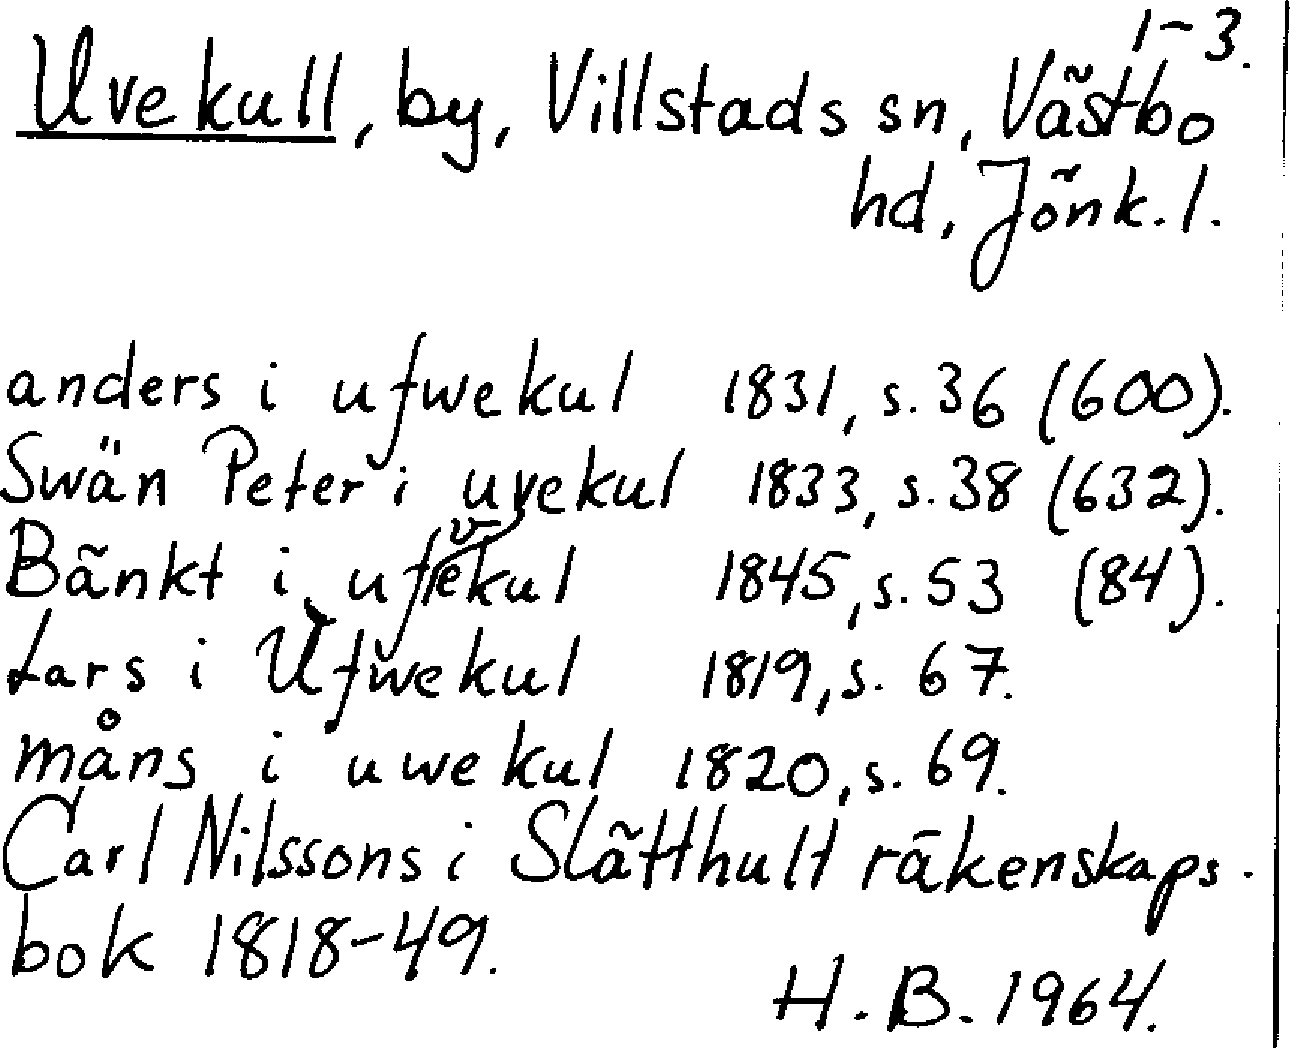 1-3.
Uvekull, by, Villstads sn, Västbo
hd, Jönk. l.
anders i ufwekul 1831, s. 36 (600).
Swän Peter i uvekul 1833, s. 38 (632).
Bänkt i ufvekul 1845, s. 53 (84).
Lars i Ufwekul 1819, s. 67.
måns i uwekul 1820, s. 69.
Carl Nilssons i Slätthult räkenskaps-
bok 1818-49.
H. B. 1964.